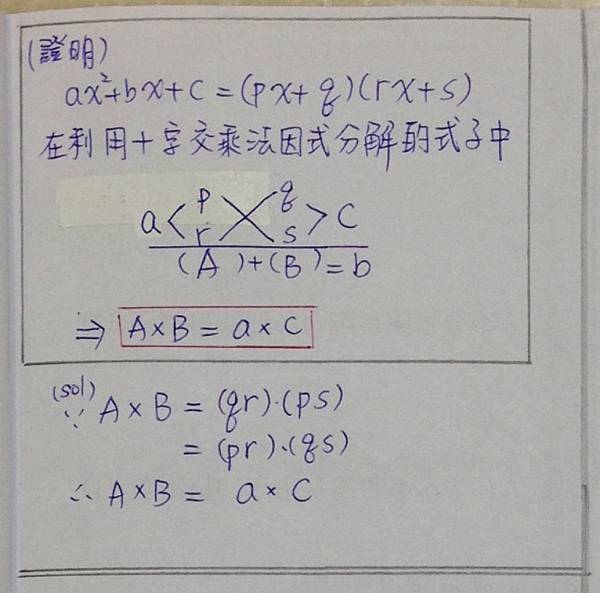 (證明)
ax²+bx+c = (px+q)(rx+s)
在利用十字交乘法因式分解的式子中
p q
a < > c
r s
(A)+(B)=b
⇒ A×B = a×c
(sol)
∵ A×B = (qr)·(ps)
= (pr)·(qs)
∴ A×B = a×c